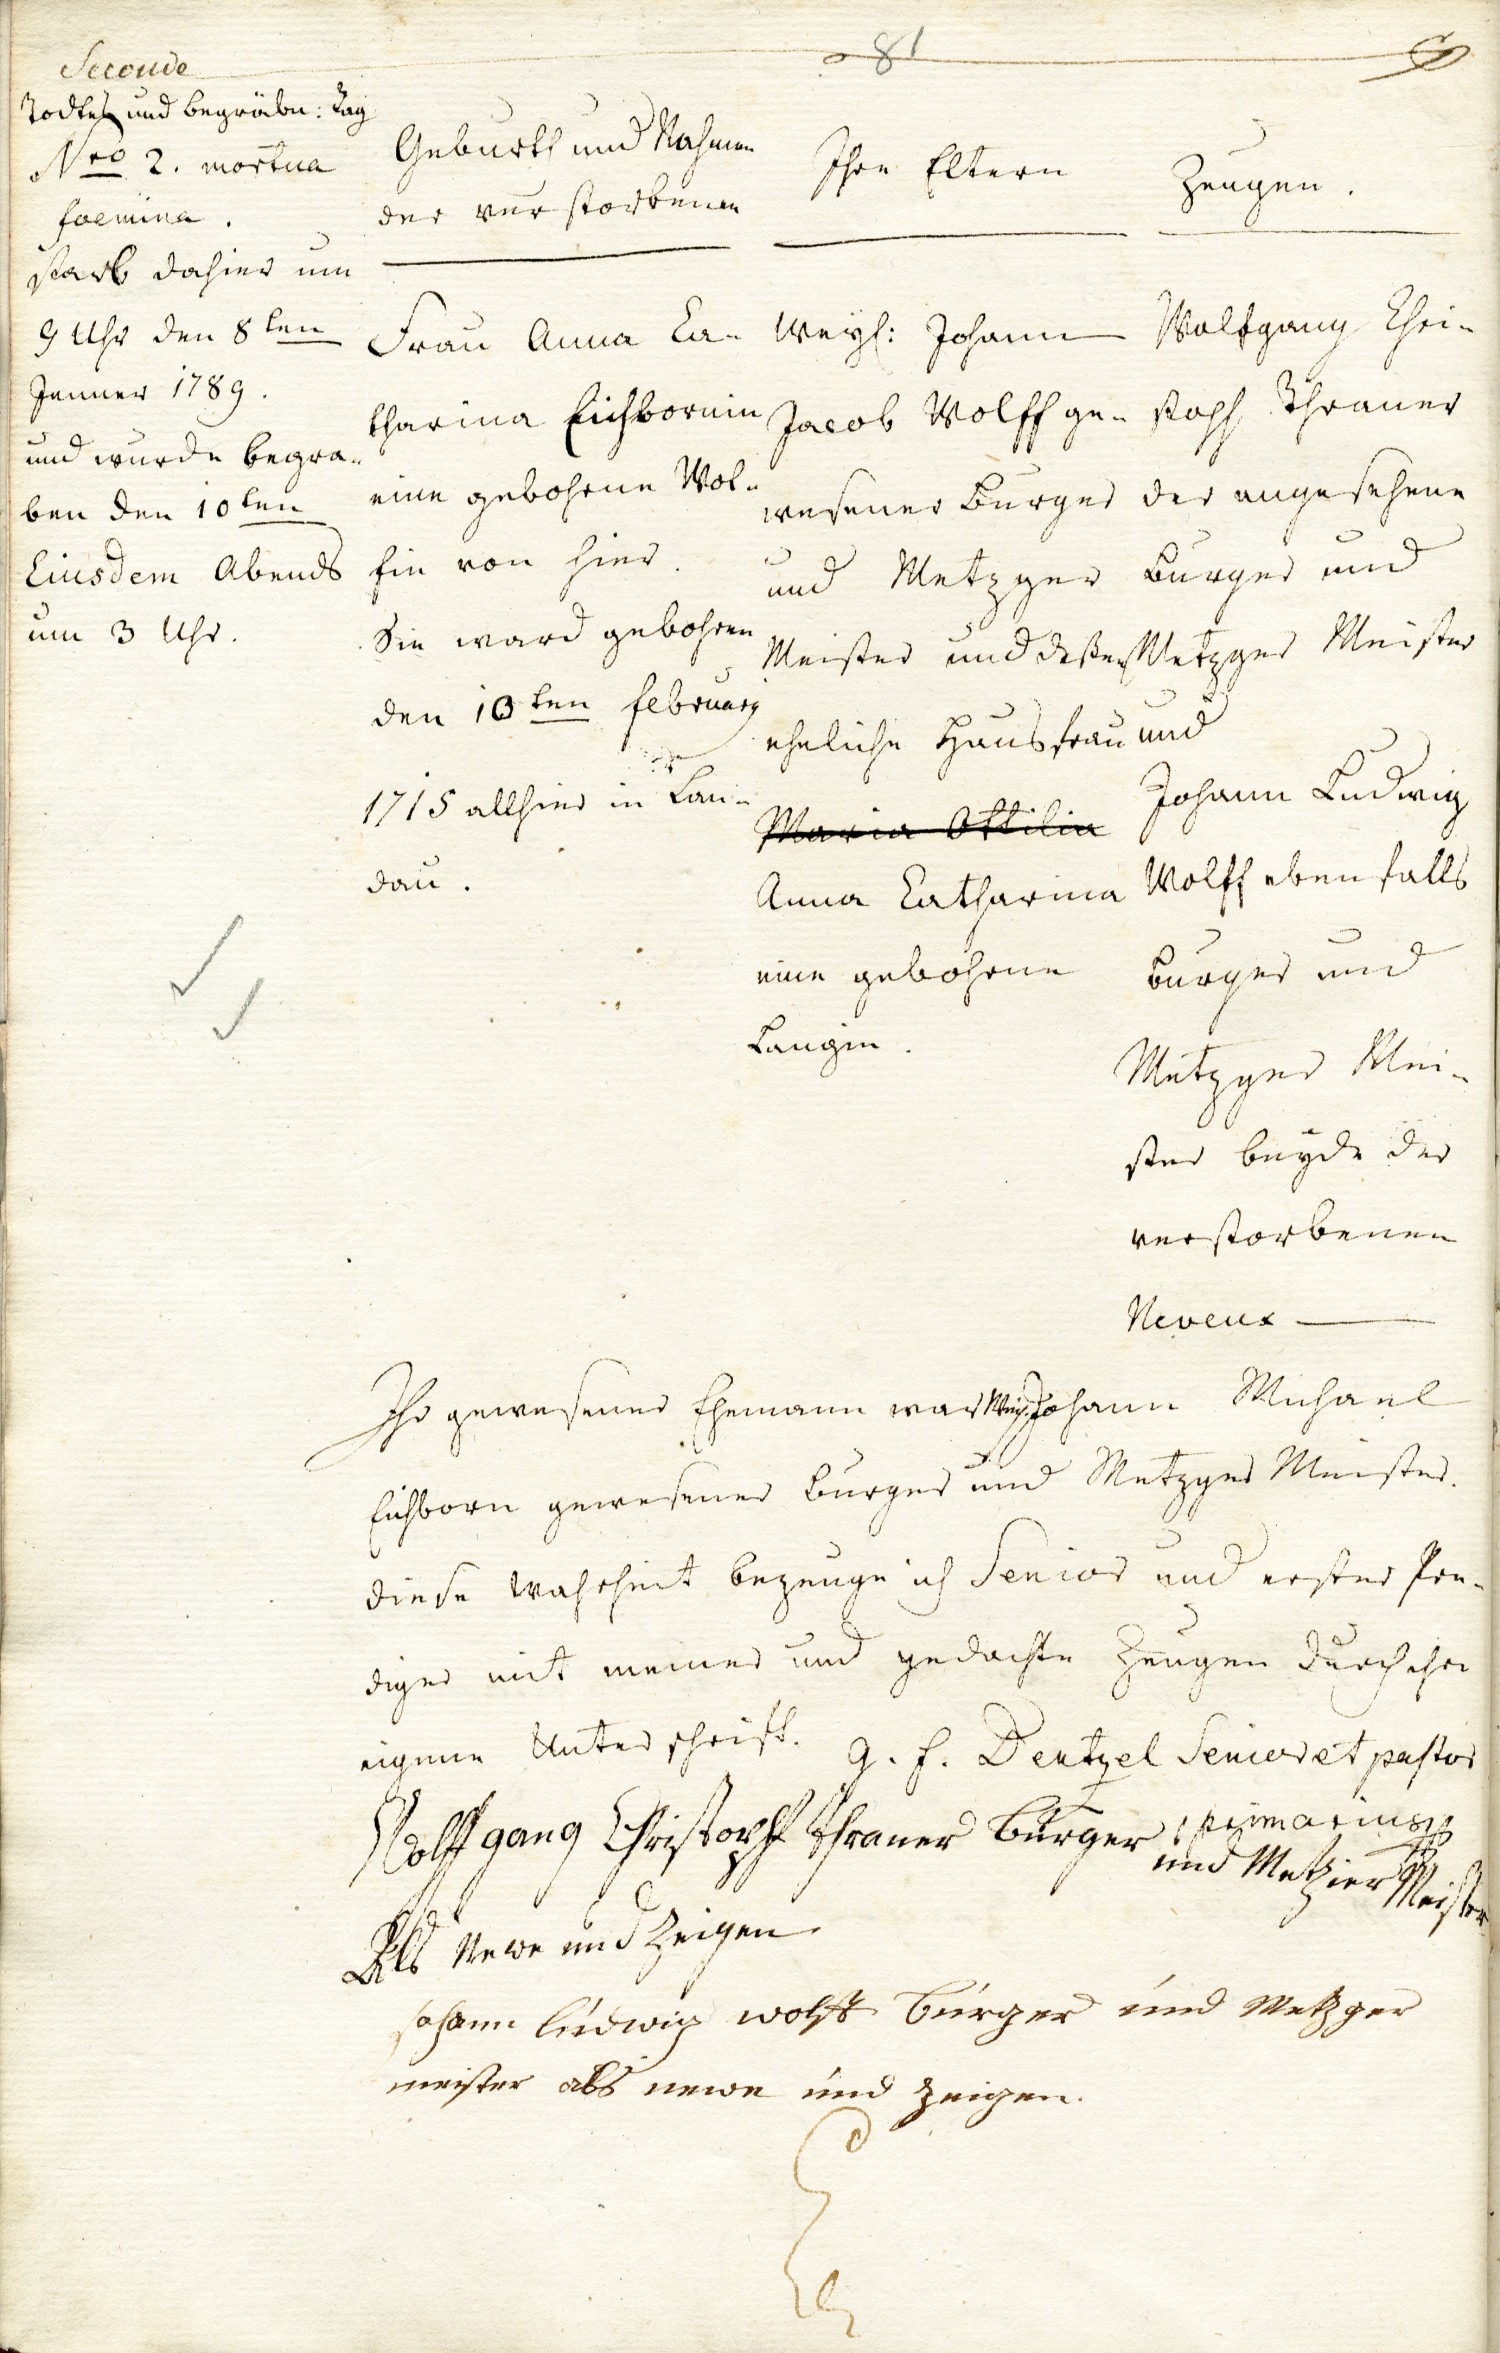 81
Seconde
Todtes und begräbn: Tag
Nro 2. mortua
foemina.
starb dahier um
9 Uhr den 8ten
Jenner 1789.
und wurde begra-
ben den 10ten
Eiusdem Abends
um 3 Uhr.
Geburth und Nahmen
der verstorbenen
Frau Anna Ca-
tharina Eichbornin
eine gebohrne Wol-
fin von hier.
Sie ward gebohren
den 10ten februarij
1715 allhier in Lan-
dau.
Ihre Eltern
Weyl: Johann
Jacob Wolff ge-
wesener Burger
und Metzger
Meister und deßen
eheliche Hausfrau
Maria Ottilia
Anna Catharina
eine gebohrne
Langin.
Zeugen.
Wolfgang Chri-
stoph Thraner
der angesehene
Burger und
Metzger Meister
und
Johann Ludwig
Wolff ebenfalls
Burger und
Metzger Mei-
ster beyde der
verstorbenen
Neveux
Ihr gewesener Ehemann war Weyl. Johann Michael
Eichborn gewesener Burger und Metzger Meister.
diese Wahrheit bezeuge ich Senior und erster Pre-
diger mit meiner und gedachte Zeugen durch ihre
eigene Unterschrift. G. F. Dentzel Senior et pastor
primarius
Wolffgang Christoph Thraner Burger und Metzier Meister
Als Neve und Zeigen
Johann Ludwig Wolff Burger und Metzger
meister als neve und zeigen.